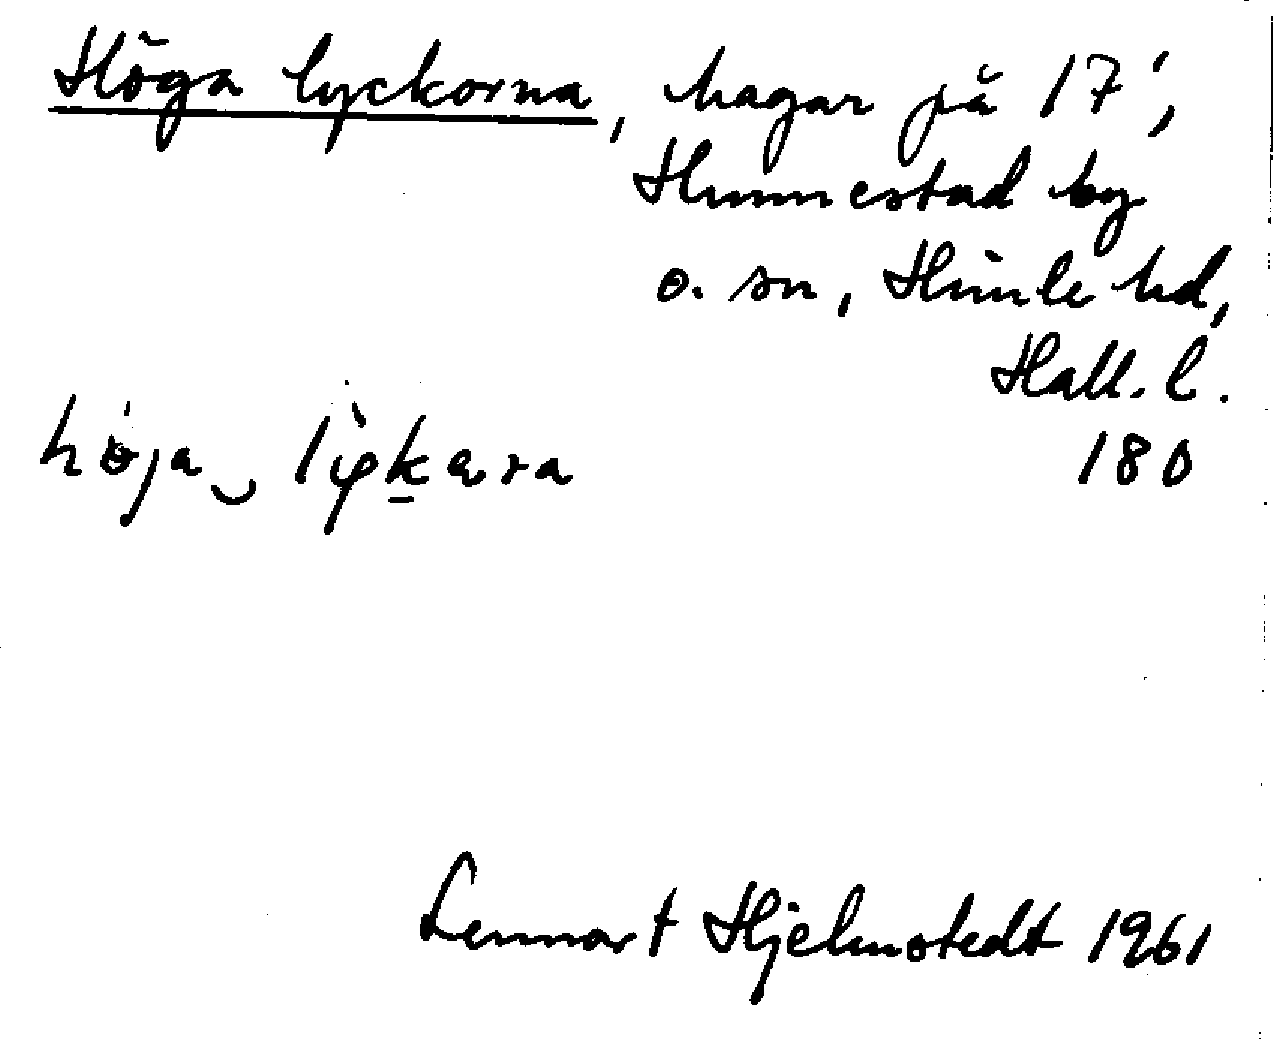 Höga lyckorna, hagar på 17',
Hunnestad by
o. sn, Himle hd,
Hall. l.
180
Lennart Hjelmstedt 1961